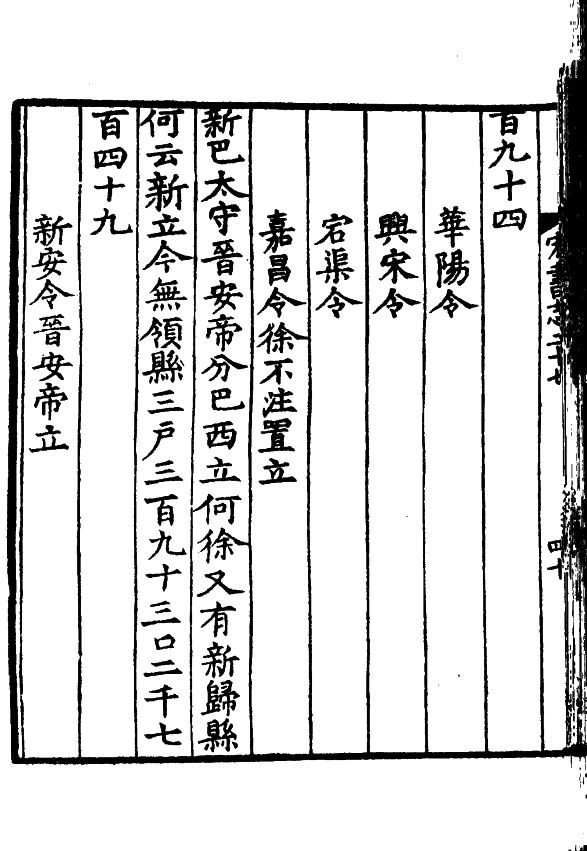 百九十四
華陽令
興宋令
宕渠令
嘉昌令徐不注置立
新巴太守晉安帝分巴西立何徐又有新歸縣
何云新立今無領縣三戶三百九十三口二千七
百四十九
新安令晉安帝立